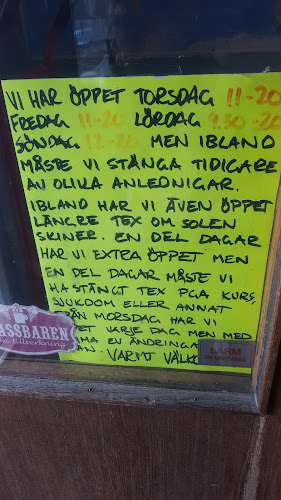 VI HAR ÖPPET TORSDAG 11-20
FREDAG 11-20 LÖRDAG 9.30-20
SÖNDAG 12-20 MEN IBLAND
MÅSTE VI STÄNGA TIDIGARE
AV OLIKA ANLEDNIGAR.
IBLAND HAR VI ÄVEN ÖPPET
LÄNGRE TEX OM SOLEN
SKINER. EN DEL DAGAR
HAR VI EXTRA ÖPPET MEN
EN DEL DAGAR MÅSTE VI
HA STÄNGT TEX PGA KURS,
SJUKDOM ELLER ANNAT
FRÅN MORSDAG HAR VI
VARJE DAG MEN MED
ÄNDRINGA
VARMT VÄLKO
ASSBAREN
n tillverkning
LARM